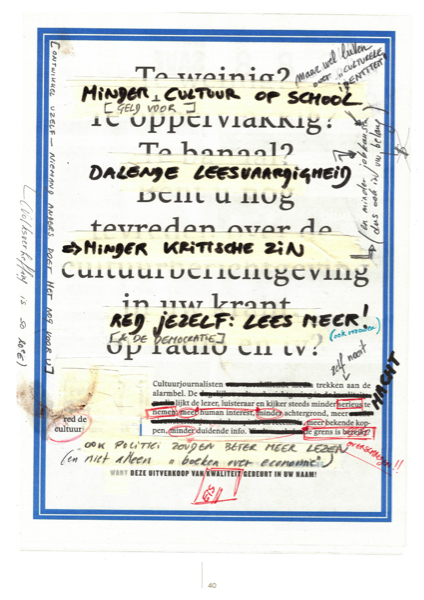 maar wel lullen
over "culturele
identiteit"
Te weinig?
MINDER CULTUUR OP SCHOOL
[GELD VOOR]
Te oppervlakkig?
Te banaal?
DALENDE LEESVAARDIGHEID
Bent u nog
tevreden over de
⇒ MINDER KRITISCHE ZIN
cultuurberichtgeving
in uw krant,
RED JEZELF: LEES MEER!
[& DE DEMOCRATIE]
op radio en tv?
[ONTWIKKEL UZELF – NIEMAND ANDERS DOET HET NOG VOOR U]
(Volksverheffing is so 20e E)
zelf nooit
MACHT
Cultuurjournalisten trekken aan de
alarmbel. De
lijkt de lezer, luisteraar en kijker steeds minder serieus te
nemen: meer human interest, minder achtergrond, meer
meer bekende kop-
pen, minder duidende info. de grens is bereikt
red de
cultuur
OOK POLITICI ZOUDEN BETER MEER LEZEN
(en niet alleen boeken over economie)
WANT DEZE UITVERKOOP VAN KWALITEIT GEBEURT IN UW NAAM!
40